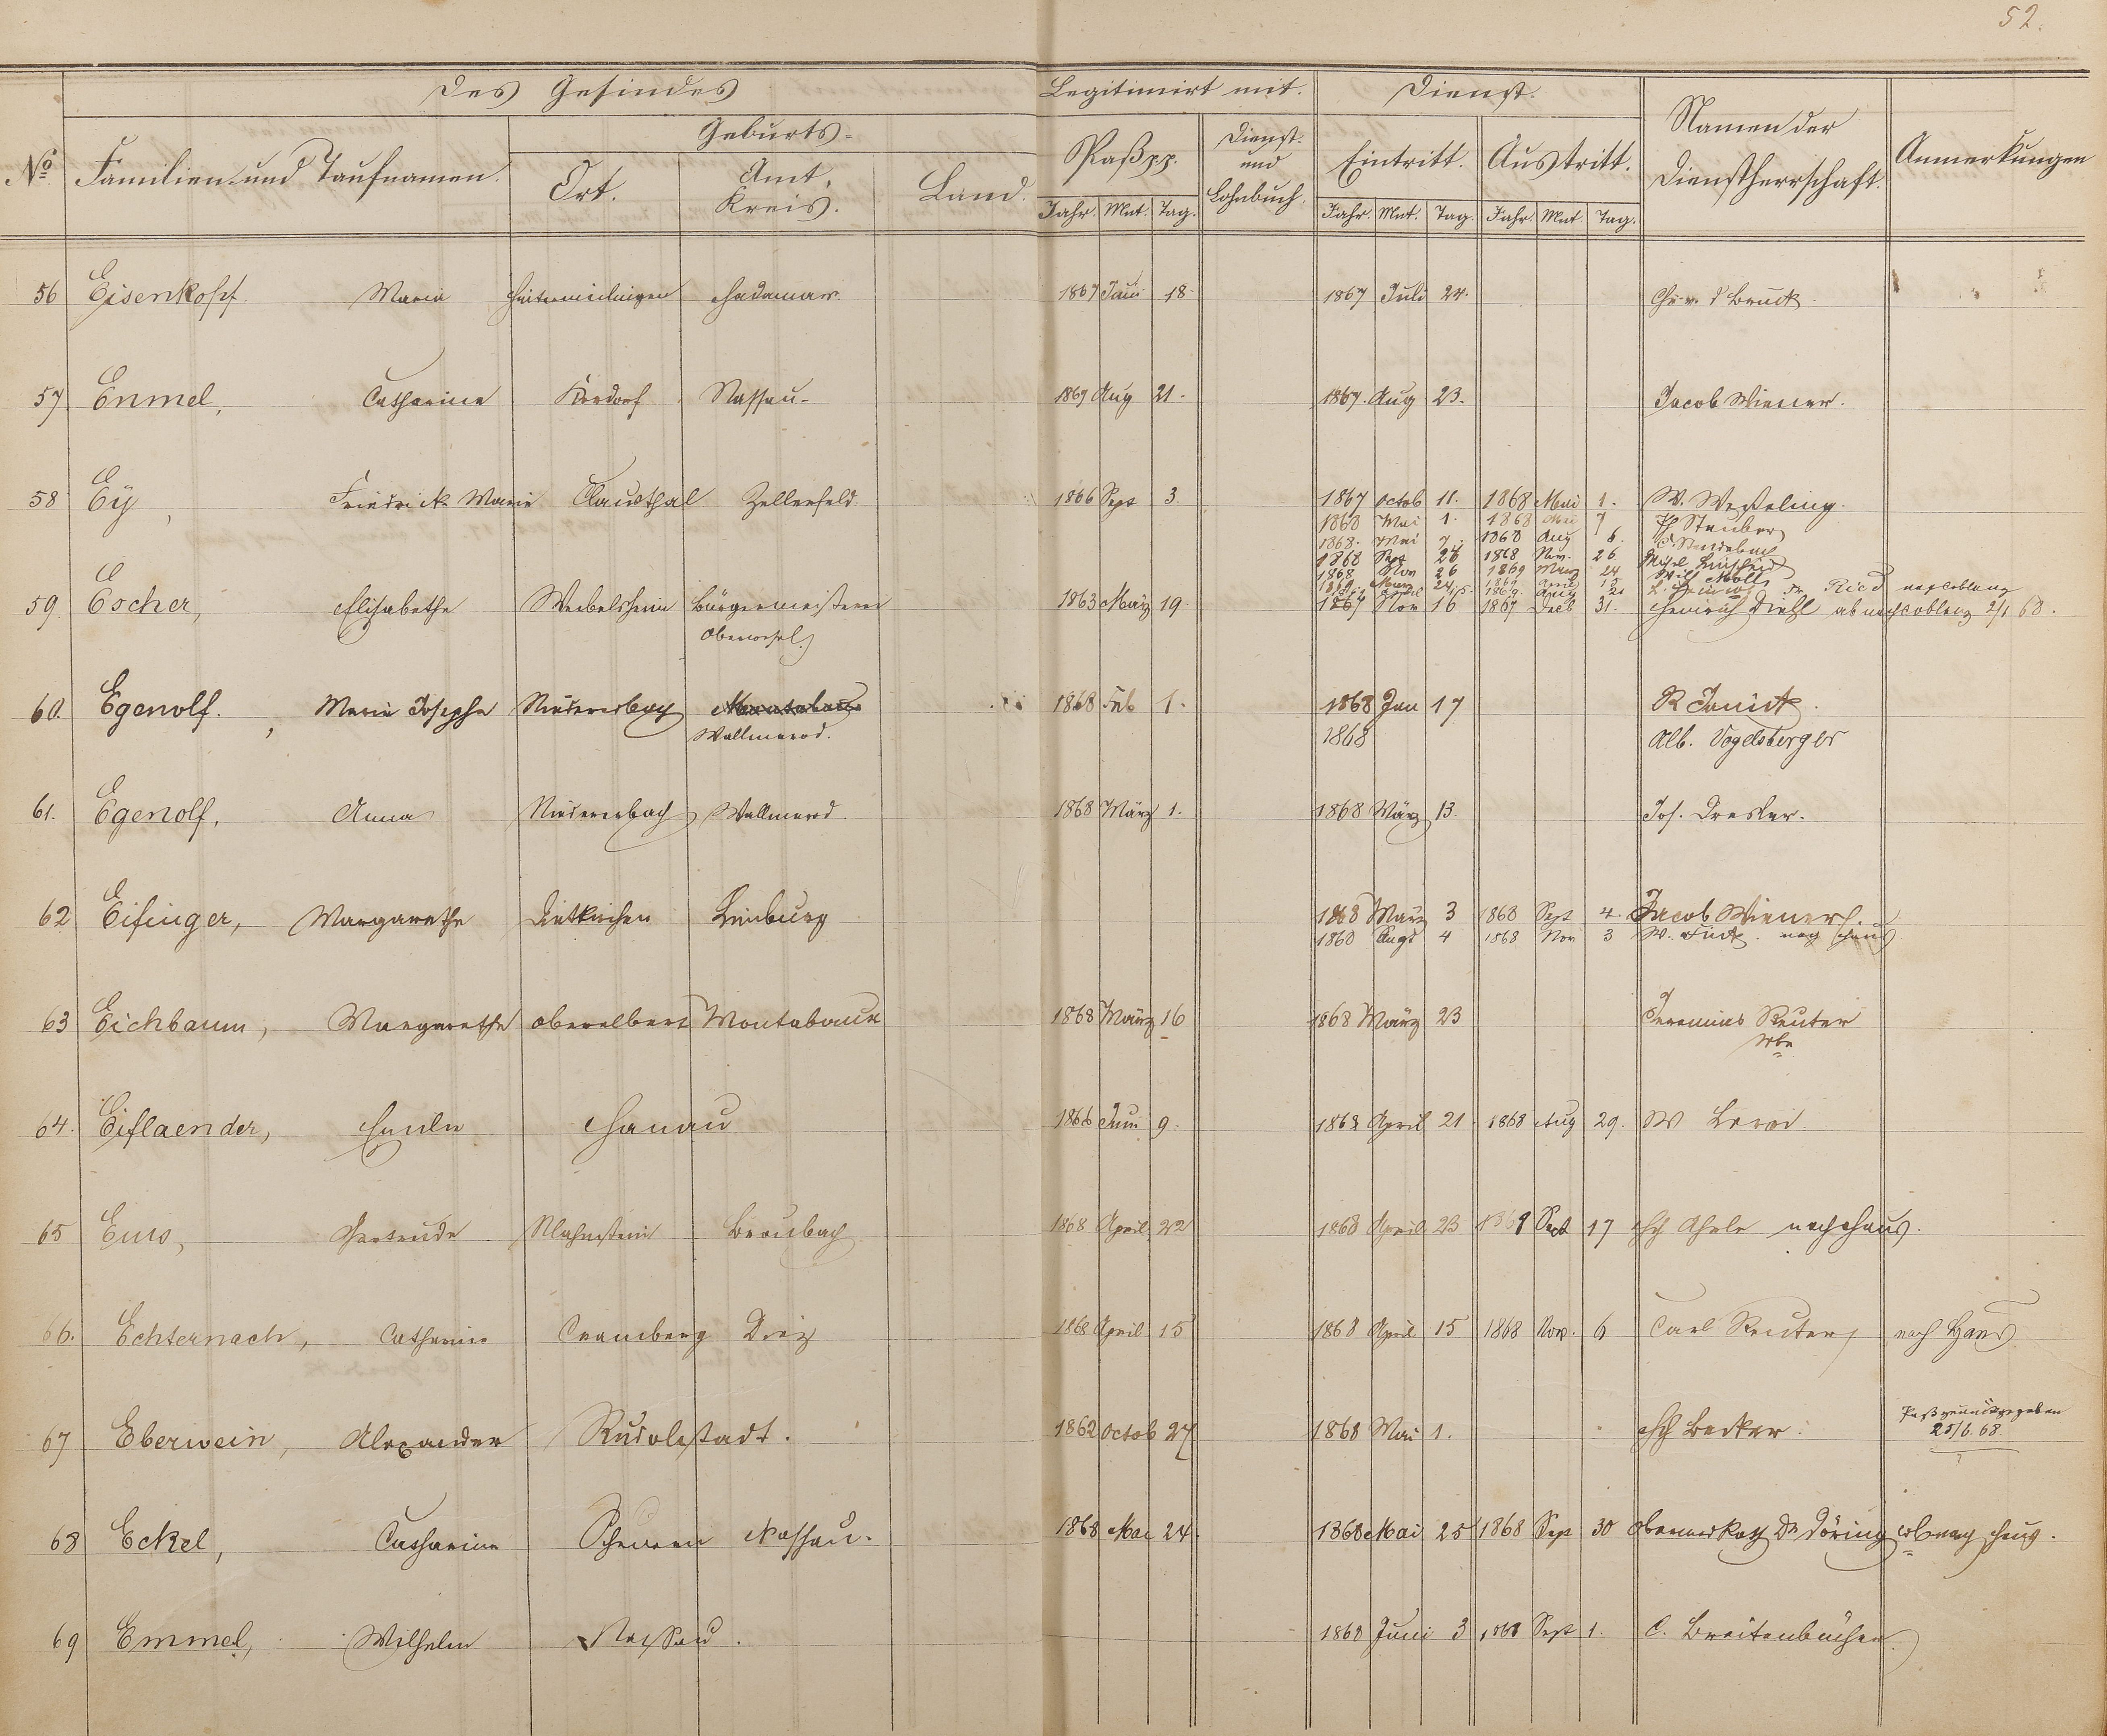 52.
Des Gesindes
Legitimirt mit.
Dienst.
No
Familien- und Taufnamen.
Geburts-
Ort.
Amt, Kreis.
Land.
Paß pp.
Dienst- und Lohnbuch.
Eintritt.
Austritt.
Namen der Dienstherrschaft.
Anmerkungen
Jahr. Mnt. Tag.
Jahr. Mnt. Tag. Jahr. Mnt. Tag.
56 Eisenkopf Maria Hadamar. 1867 Juni 18 1867 Juli 24. Bruck
57 Enmel, Catharina Kördorf Nassau- 1867 Aug 21. 1867. Aug 23. Jacob Wiener.
58 Ey, Friedricke Marie Clausthal Zellerfeld 1866 Sept 3. 1867 Octob 11. 1868 Mai 1. W. Weßeling.
1868 Mai 1. 1868 Mai 7 Stauber
1868. Mai 7. 1868 Aug 6.
1868 Sept 28 1868 Nov. 26
1868 Nov 26 1869 März 24 Wilh Moll
1869 März 24 1869 April 15
59 Escher, Elisabetha Weibelsheim Bürgermeisterei Oberwesel 1863 März 19. 1867 Nov 16 1867 Decb 31. Heinrich Diehl ab nach Coblenz 2/1 68.
Ried nach Coblenz
60. Egenolf, Maria Josepha Niedererbach Montabaur 1868 Feb 1. 1868 Jan 17
Wallmerod. 1868 Alb. Vogelsberger
61. Egenolf, Anna Niedererbach Wallmerod. 1868 März 1. 1868 März 13. Jos. Dresler.
62 Eisinger, Margaretha Dietkirchen Limburg 1868 März 3 1868 Sept 4. Jacob Wiener
1868 Sept 4 1868 Nov 3 nach Haus
63 Eichbaum, Margaretha Oberelbert Montabaur 1868 März 16 1868 März 23 Jeremias Reuter
Wbe
64. Eiflaender, Hanau 1866 Juni 9. 1868 April 21 1868 Aug 29. W
65 Gertrude Braubach 1868 April 22 1868 April 23 1868 Sept 17 nach Haus.
66. Echternach, Catharine Cramberg Diez 1868 April 15 1868 April 15 1868 Nov. 6 Carl Reuter nach Haus
67 Eberwein, Alexander Rudolstadt. 1862 Octob 27 1868 Mai 1. Becker. Paß zurückgegeben
25/6. 68.
68 Eckel, Catharine Scheuern Nassau. 1868 Mai 24. 1868 Mai 25 1868 Sept 30 Dr Döring ab nach Haus.
69 Emmel, Wilhelm Nassau. 1868 Juni 3 1868 Sept 1. C. Breitenbücher.